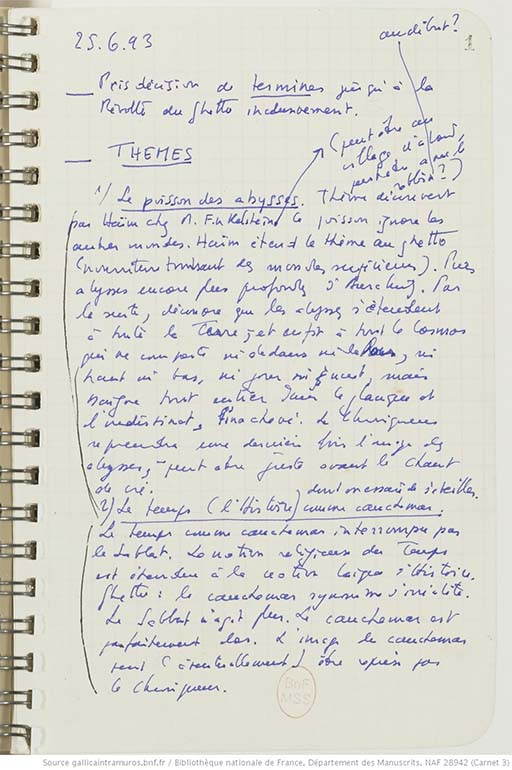 25.6.93
au début ?
1
— Pris décision de terminer jusqu'à la
Révolte du ghetto inclusivement.
— THEMES
(peut-être au
village d'abord,
avec le
rabbin ?)
1) Le poisson des abysses. Thème découvert
par Haïm chez M. Finkelstein le poisson ignore les
autres mondes. Haïm étend le thème au ghetto
(nourriture tombant des mondes supérieurs). Puis
abysses encore plus profonds d'Auschwitz. Par
la suite, découvre que les abysses s'étendent
à toute la Terre, et enfin à tout le Cosmos
qui ne comporte ni dedans ni dehors, ni
haut ni bas, ni jour ni nuit, mais
baigne tout entier dans le et
l'indistinct, l'inachevé. Le chroniqueur
reprendra une dernière fois l'image des
abysses, peut-être juste avant le chant
du
2) Le temps (l'Histoire) comme cauchemar.
dont on essaie de s'éveiller.
Le temps comme cauchemar interrompu par
le Sabbat. La notion religieuse du Temps
est étendue à la notion laïque d'Histoire.
Ghetto : le cauchemar synonyme
Le Sabbat n'agit plus. Le cauchemar est
parfaitement clos. L'image du cauchemar
peut (éventuellement) être reprise par
le chroniqueur.
BnF
MSS
Source gallicaintramuros.bnf.fr / Bibliothèque nationale de France, Département des Manuscrits, NAF 28942 (Carnet 3)